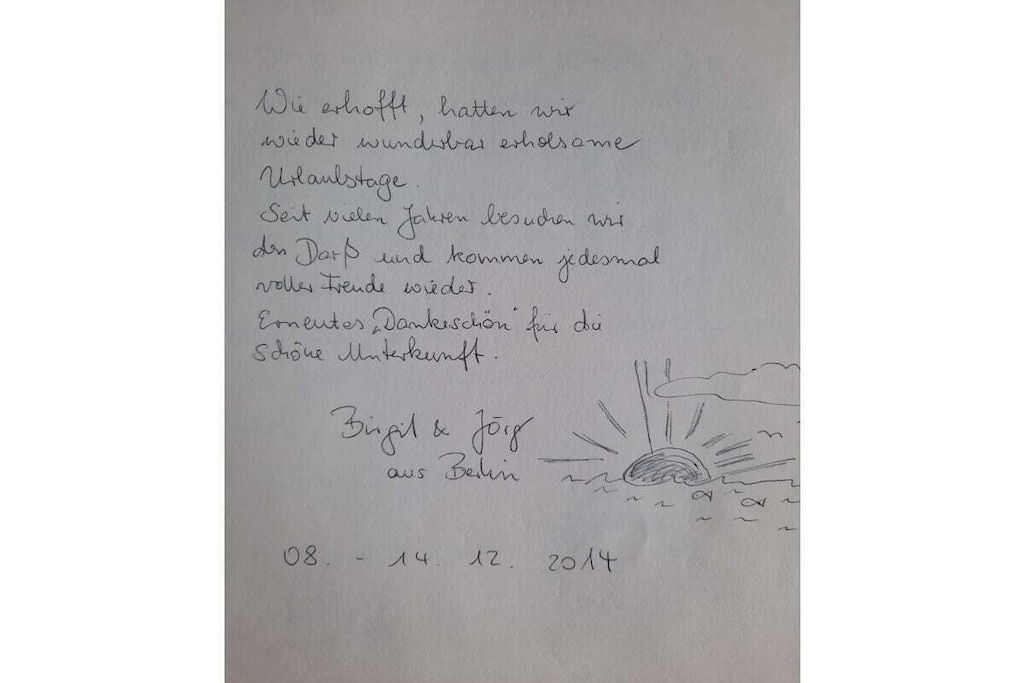 Wie erhofft, hatten wir
wieder wunderbar erholsame
Urlaubstage.
Seit vielen Jahren besuchen wir
den Darß und kommen jedesmal
voller Freude wieder.
Erneutes „Dankeschön" für die
schöne Unterkunft.
Birgit & Jörg
aus Berlin
08. - 14. 12. 2014